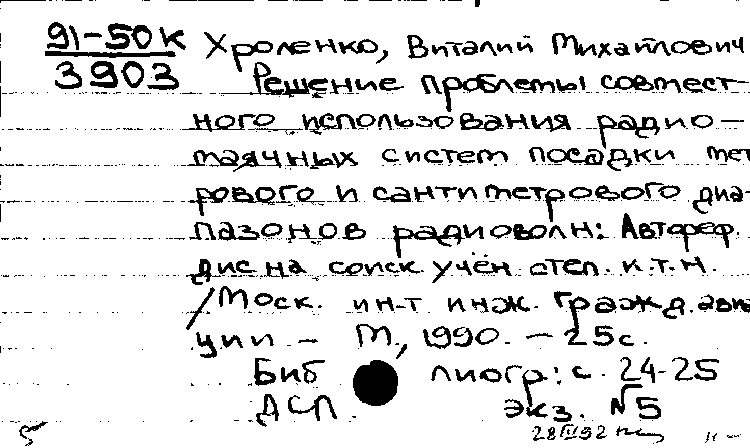 91-50К Хроленко, Виталий Михайлович
3903 Решение проблемы совмест-
ного использования радио-
маячных систем посадки мет-
рового и сантиметрового диа-
пазонов радиоволн: Автореф.
дис на соиск учён степ. к.т.н.
/Моск. ин-т инж. гражд. авиа
ции - М., 1990. - 25с.
Библиогр: с. 24-25
ДСП. экз. №5